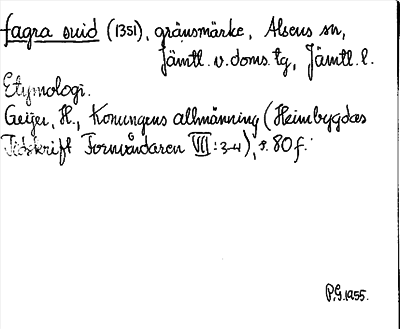 fagra suid (1351), gränsmärke, Alsens sn,
Jämtl. v. doms. tg, Jämtl. l.
Etymologi.
Geijer, H., Konungens allmänning (Heimbygdas
Tidskrift Fornvårdaren VII:3-4), s. 80 f.
P.G. 1955.